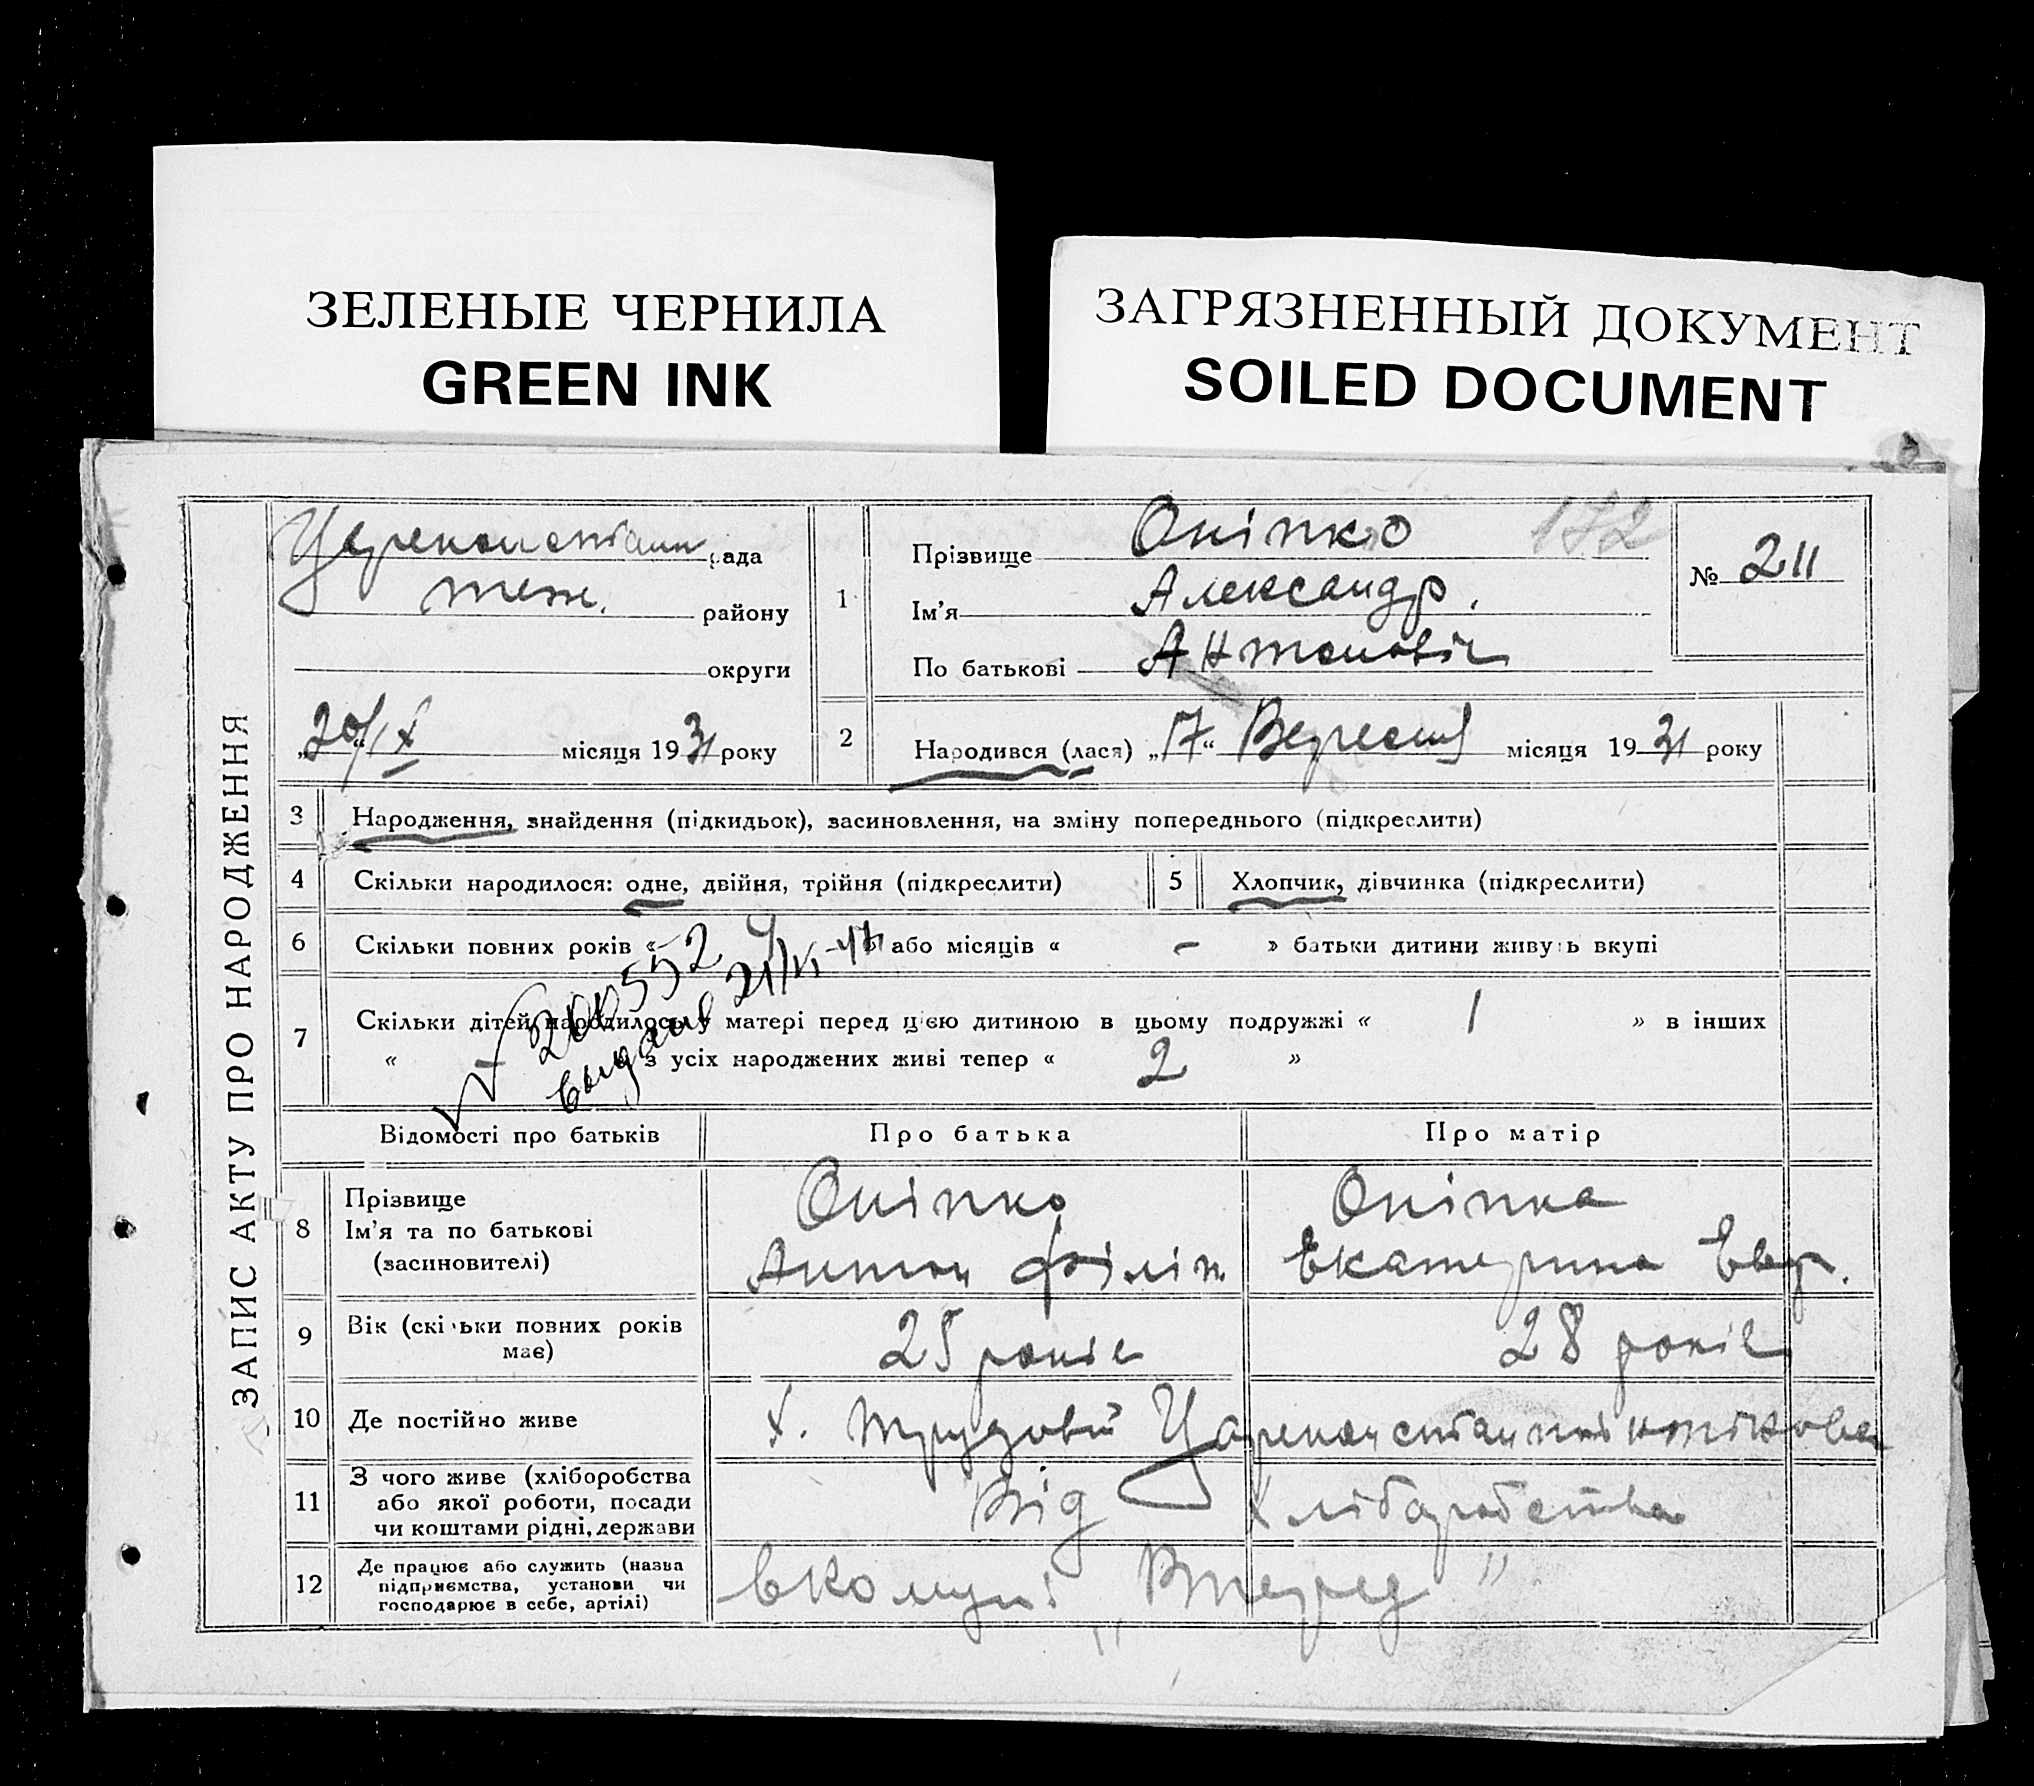 ЗЕЛЕНЫЕ ЧЕРНИЛА
GREEN INK
ЗАГРЯЗНЕННЫЙ ДОКУМЕНТ
SOILED DOCUMENT
ЗАПИС АКТУ ПРО НАРОДЖЕННЯ
рада
теж. району
округи
„20/IX місяця 1931 року
1
Прізвище Оніпко 172
Ім'я Александр.
По батькові Антоновіч
№ 211
2
Народився (лася) „17“ Вересня місяця 1931 року
3 Народження, знайдення (підкидьок), засиновлення, на зміну попереднього (підкреслити)
4 Скільки народилося: одне, двійня, трійня (підкреслити)
5 Хлопчик, дівчинка (підкреслити)
6 Скільки повних років « 4 » або місяців « – » батьки дитини живуть вкупі
7 Скільки дітей народилось у матері перед цією дитиною в цьому подружжі « 1 » в інших
« – » з усіх народжених живі тепер « 2 »
Відомості про батьків Про батька Про матір
8 Прізвище
Ім'я та по батькові
(засиновителі)
Оніпко
Антон Філіп.
Оніпка
Екатерина
9 Вік (скільки повних років
має)
25 років
28 років
10 Де постійно живе
х. Трудовий
11 З чого живе (хліборобства
або якої роботи, посади
чи коштами рідні, держави
Від Хліборобства
12 Де працює або служить (назва
підприємства, установи чи
господарює в себе, артілі)
в комуні „Вперед"